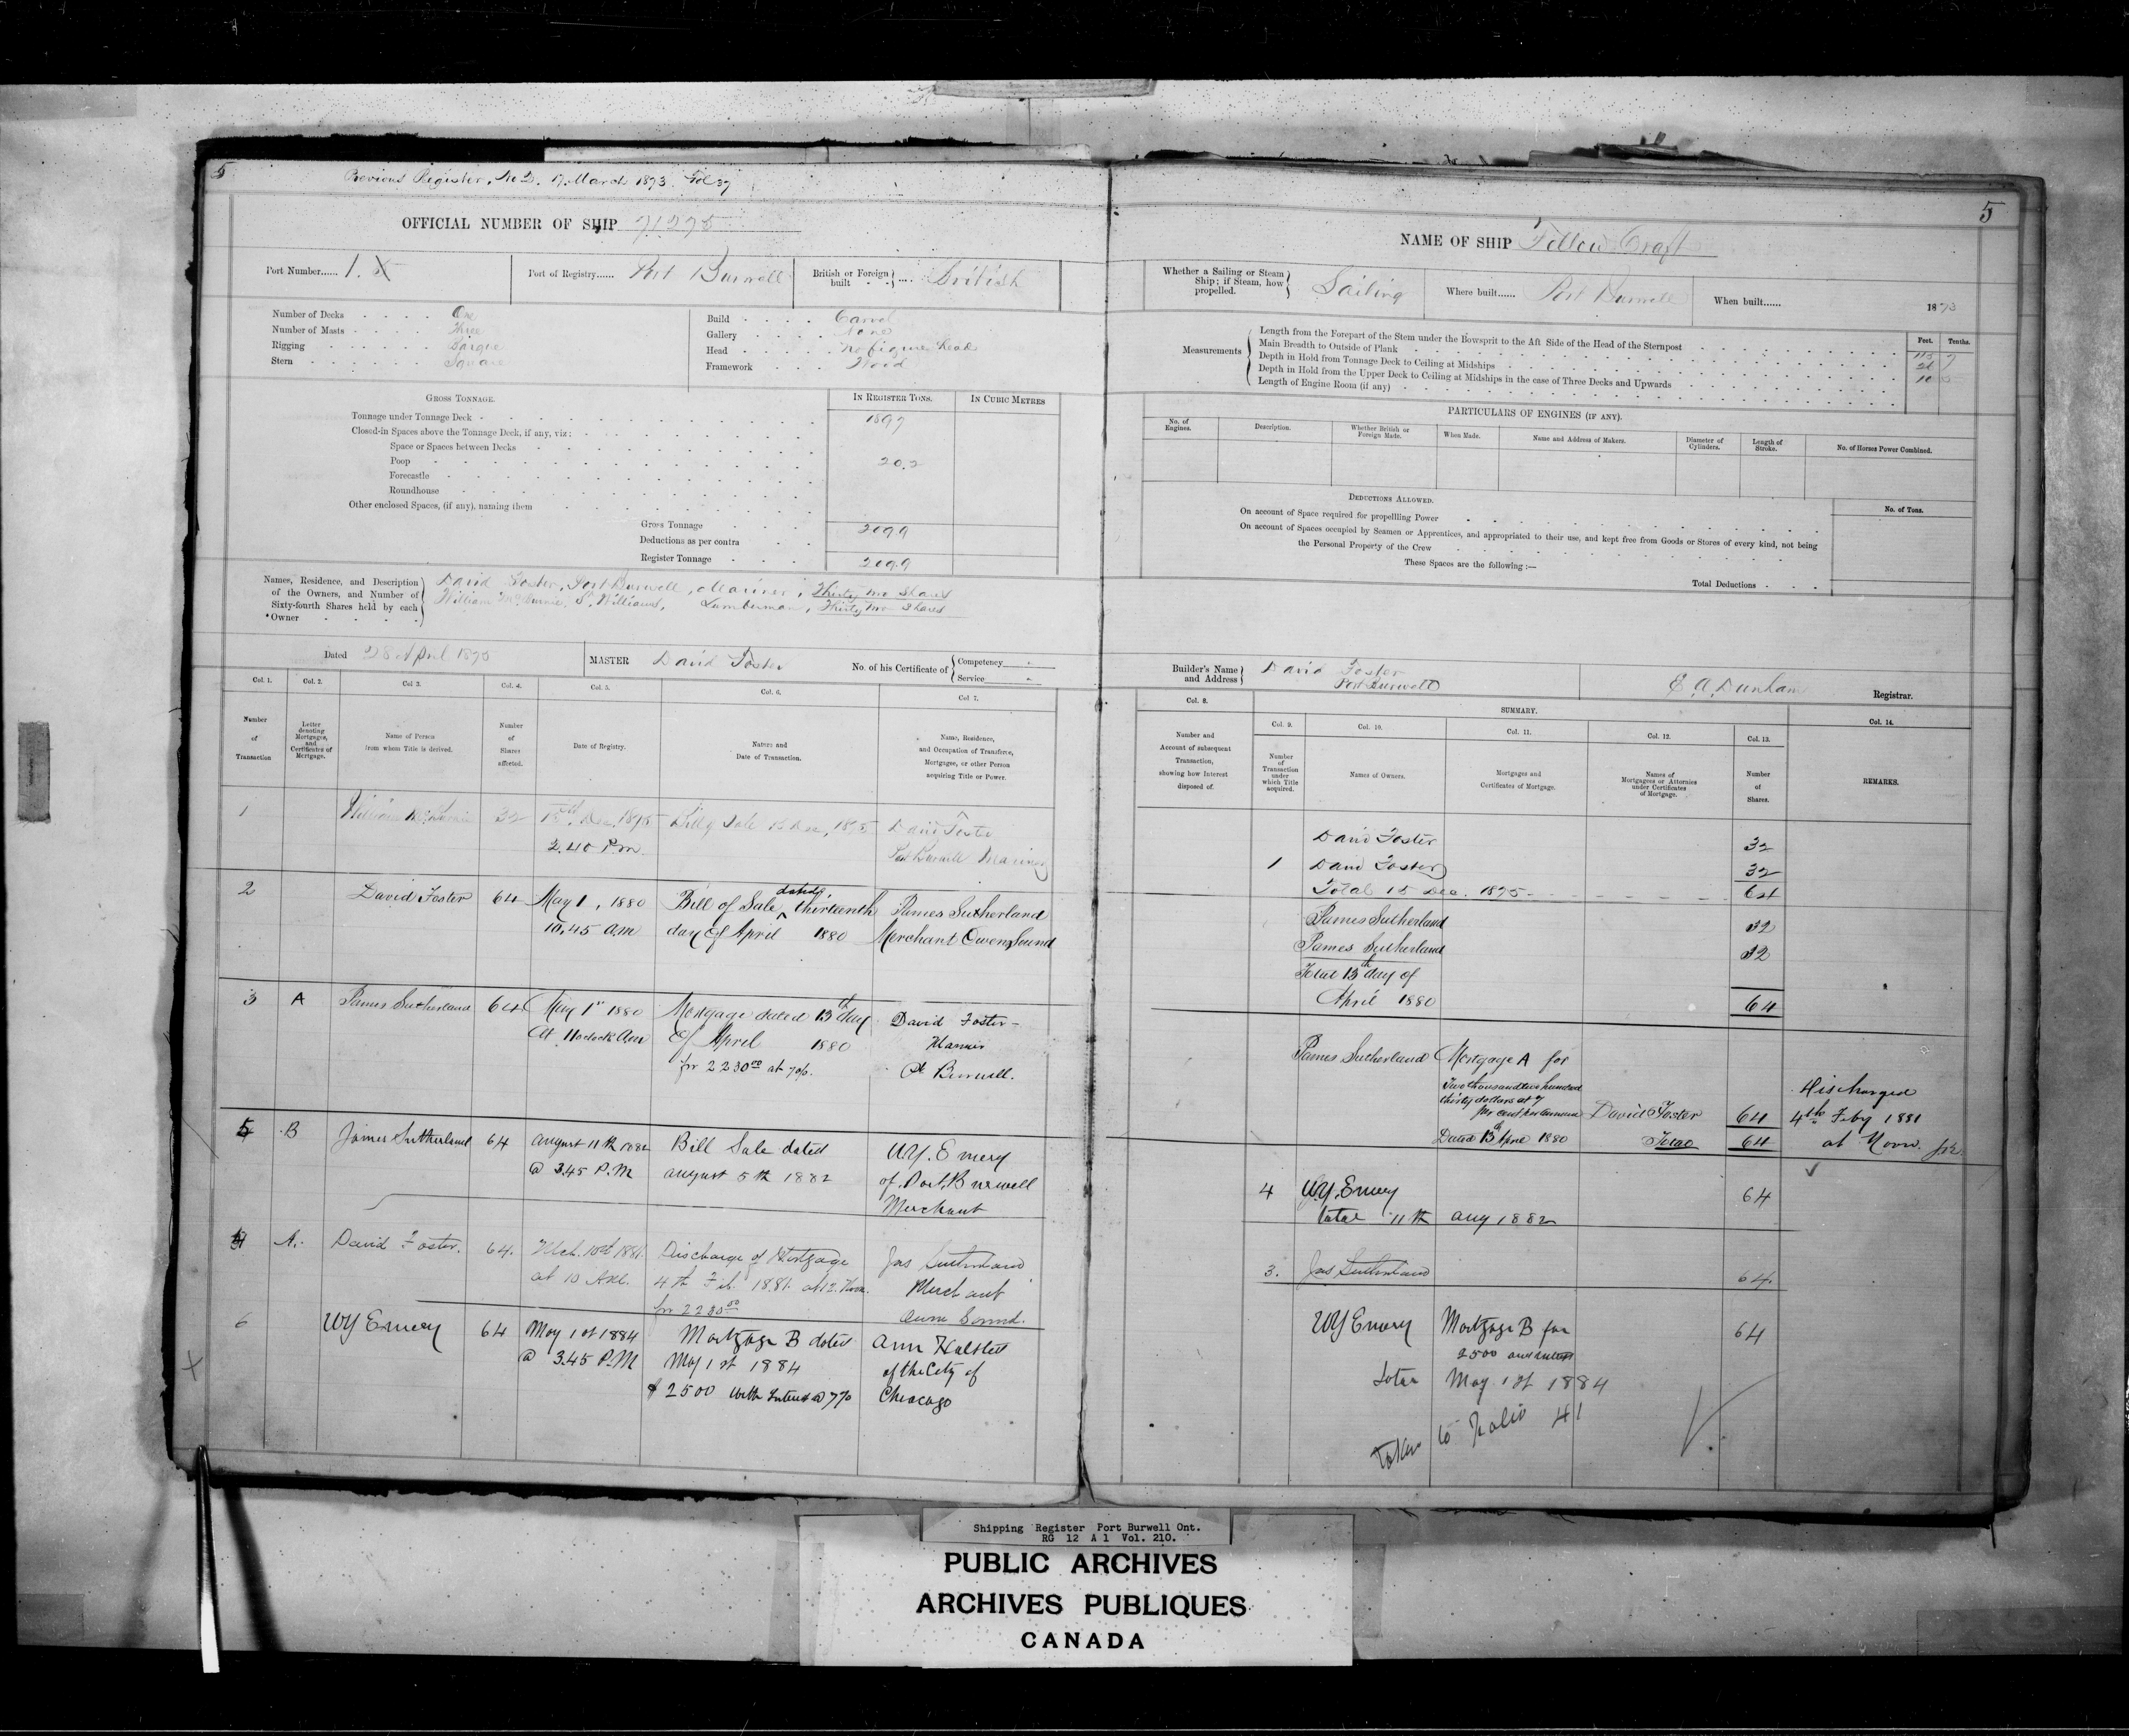 5
Previous Register, No 2. 17 March 1873. Fol 37
OFFICIAL NUMBER OF SHIP 71275
Port Number...... 1.
Port of Registry...... Port Burwell
British or Foreign built .... British
Number of Decks One
Number of Masts Three
Rigging Barque
Stern Square
Build Carvel
Gallery None
Head No figure head
Framework Wood
GROSS TONNAGE.
IN REGISTER TONS.
IN CUBIC METRES
Tonnage under Tonnage Deck 189.7
Closed-in Spaces above the Tonnage Deck, if any, viz:
Space or Spaces between Decks
Poop 20.2
Forecastle
Roundhouse
Other enclosed Spaces, (if any), naming them
Gross Tonnage 209.9
Deductions as per contra
Register Tonnage 209.9
Names, Residence, and Description of the Owners, and Number of Sixty-fourth Shares held by each *Owner
David Foster, Port Burwell, Mariner, Thirty two Shares
William St. Williams, Lumberman, Thirty two Shares
Dated 28 April 1875
MASTER David Foster
No. of his Certificate of Competency Service
Col. 1. Col. 2. Col 3. Col. 4. Col. 5. Col. 6. Col 7.
Number of Transaction
Letter denoting Mortgages, and Certificates of Mortgage.
Name of Person from whom Title is derived.
Number of Shares affected.
Date of Registry.
Nature and Date of Transaction.
Name, Residence, and Occupation of Transferee, Mortgagee, or other Person acquiring Title or Power.
1 William 32 15th Dec. 1875 Bill of Sale 15 Dec, 1875 David Foster
2.40 P.m. Port Burwell Mariner
2 David Foster 64 May 1, 1880 Bill of Sale dated thirteenth James Sutherland
10.45 a.m day of April 1880 Merchant Owen Sound
3 A James Sutherland 64 May 1st 1880 Mortgage dated 13th day David Foster
At 11 oclock Am of April 1880 Mariner
for 2230.00 at 7 %. Pt Burwell.
5 B James Sutherland 64 August 11th 1882 Bill Sale dated W.Y. Emery
@ 3.45 P.M august 5th 1882 of Port Burwell
Merchant
4 A. David Foster. 64. Mch. 10th 1881 Discharge of Mortgage Jas Sutherland
at 10 A.M. 4th Feb. 1881. at 12. Noon. Merchant
for 2230.00 Owen Sound.
6 W Y Emery 64 May 1st 1884 Mortgage B dated Ann Halsted
@ 3.45 P.M May 1st 1884 of the City of
$2500 with Interest @ 7% Chicago
5
NAME OF SHIP Fellow Craft
Whether a Sailing or Steam Ship; if Steam, how propelled. Sailing
Where built...... Port Burwell
When built...... 1873
Measurements
Feet. Tenths.
Length from the Forepart of the Stem under the Bowsprit to the Aft Side of the Head of the Sternpost
Main Breadth to Outside of Plank
Depth in Hold from Tonnage Deck to Ceiling at Midships
Depth in Hold from the Upper Deck to Ceiling at Midships in the case of Three Decks and Upwards
Length of Engine Room (if any)
PARTICULARS OF ENGINES (IF ANY).
No. of Engines.
Description.
Whether British or Foreign Made.
When Made.
Name and Address of Makers.
Diameter of Cylinders.
Length of Stroke.
No. of Horses Power Combined.
DEDUCTIONS ALLOWED.
No. of Tons.
On account of Space required for propellling Power
On account of Spaces occupied by Seamen or Apprentices, and appropriated to their use, and kept free from Goods or Stores of every kind, not being
the Personal Property of the Crew
These Spaces are the following :—
Total Deductions
Builder's Name and Address David Foster
Port Burwell
E. A. Dunham Registrar.
Col. 8. SUMMARY. Col. 14.
Col. 9. Col. 10. Col. 11. Col. 12. Col. 13.
Number and Account of subsequent Transaction, showing how Interest disposed of.
Number of Transaction under which Title acquired.
Names of Owners.
Mortgages and Certificates of Mortgage.
Names of Mortgagees or Attornies under Certificates of Mortgage.
Number of Shares.
REMARKS.
David Foster 32
1 David Foster 32
Total 15 Dec. 1875 64
James Sutherland 32
James Sutherland 32
Total 13th day of
April 1880 64
James Sutherland Mortgage A for
Two thousand two hundred
thirty dollars at 7
per cent per annum David Foster 64
Dated 13th April 1880 Total 64
Discharged
4th Feby 1881
at Noon.
4 W.Y. Emery 64
total 11th Aug 1882
3. Jas Sutherland 64.
W Y Emery Mortgage B for 64
2500 and interest
Total May 1st 1884
Taken to Folio 41
Shipping Register Port Burwell Ont.
RG 12 A 1 Vol. 210.
PUBLIC ARCHIVES
ARCHIVES PUBLIQUES
CANADA